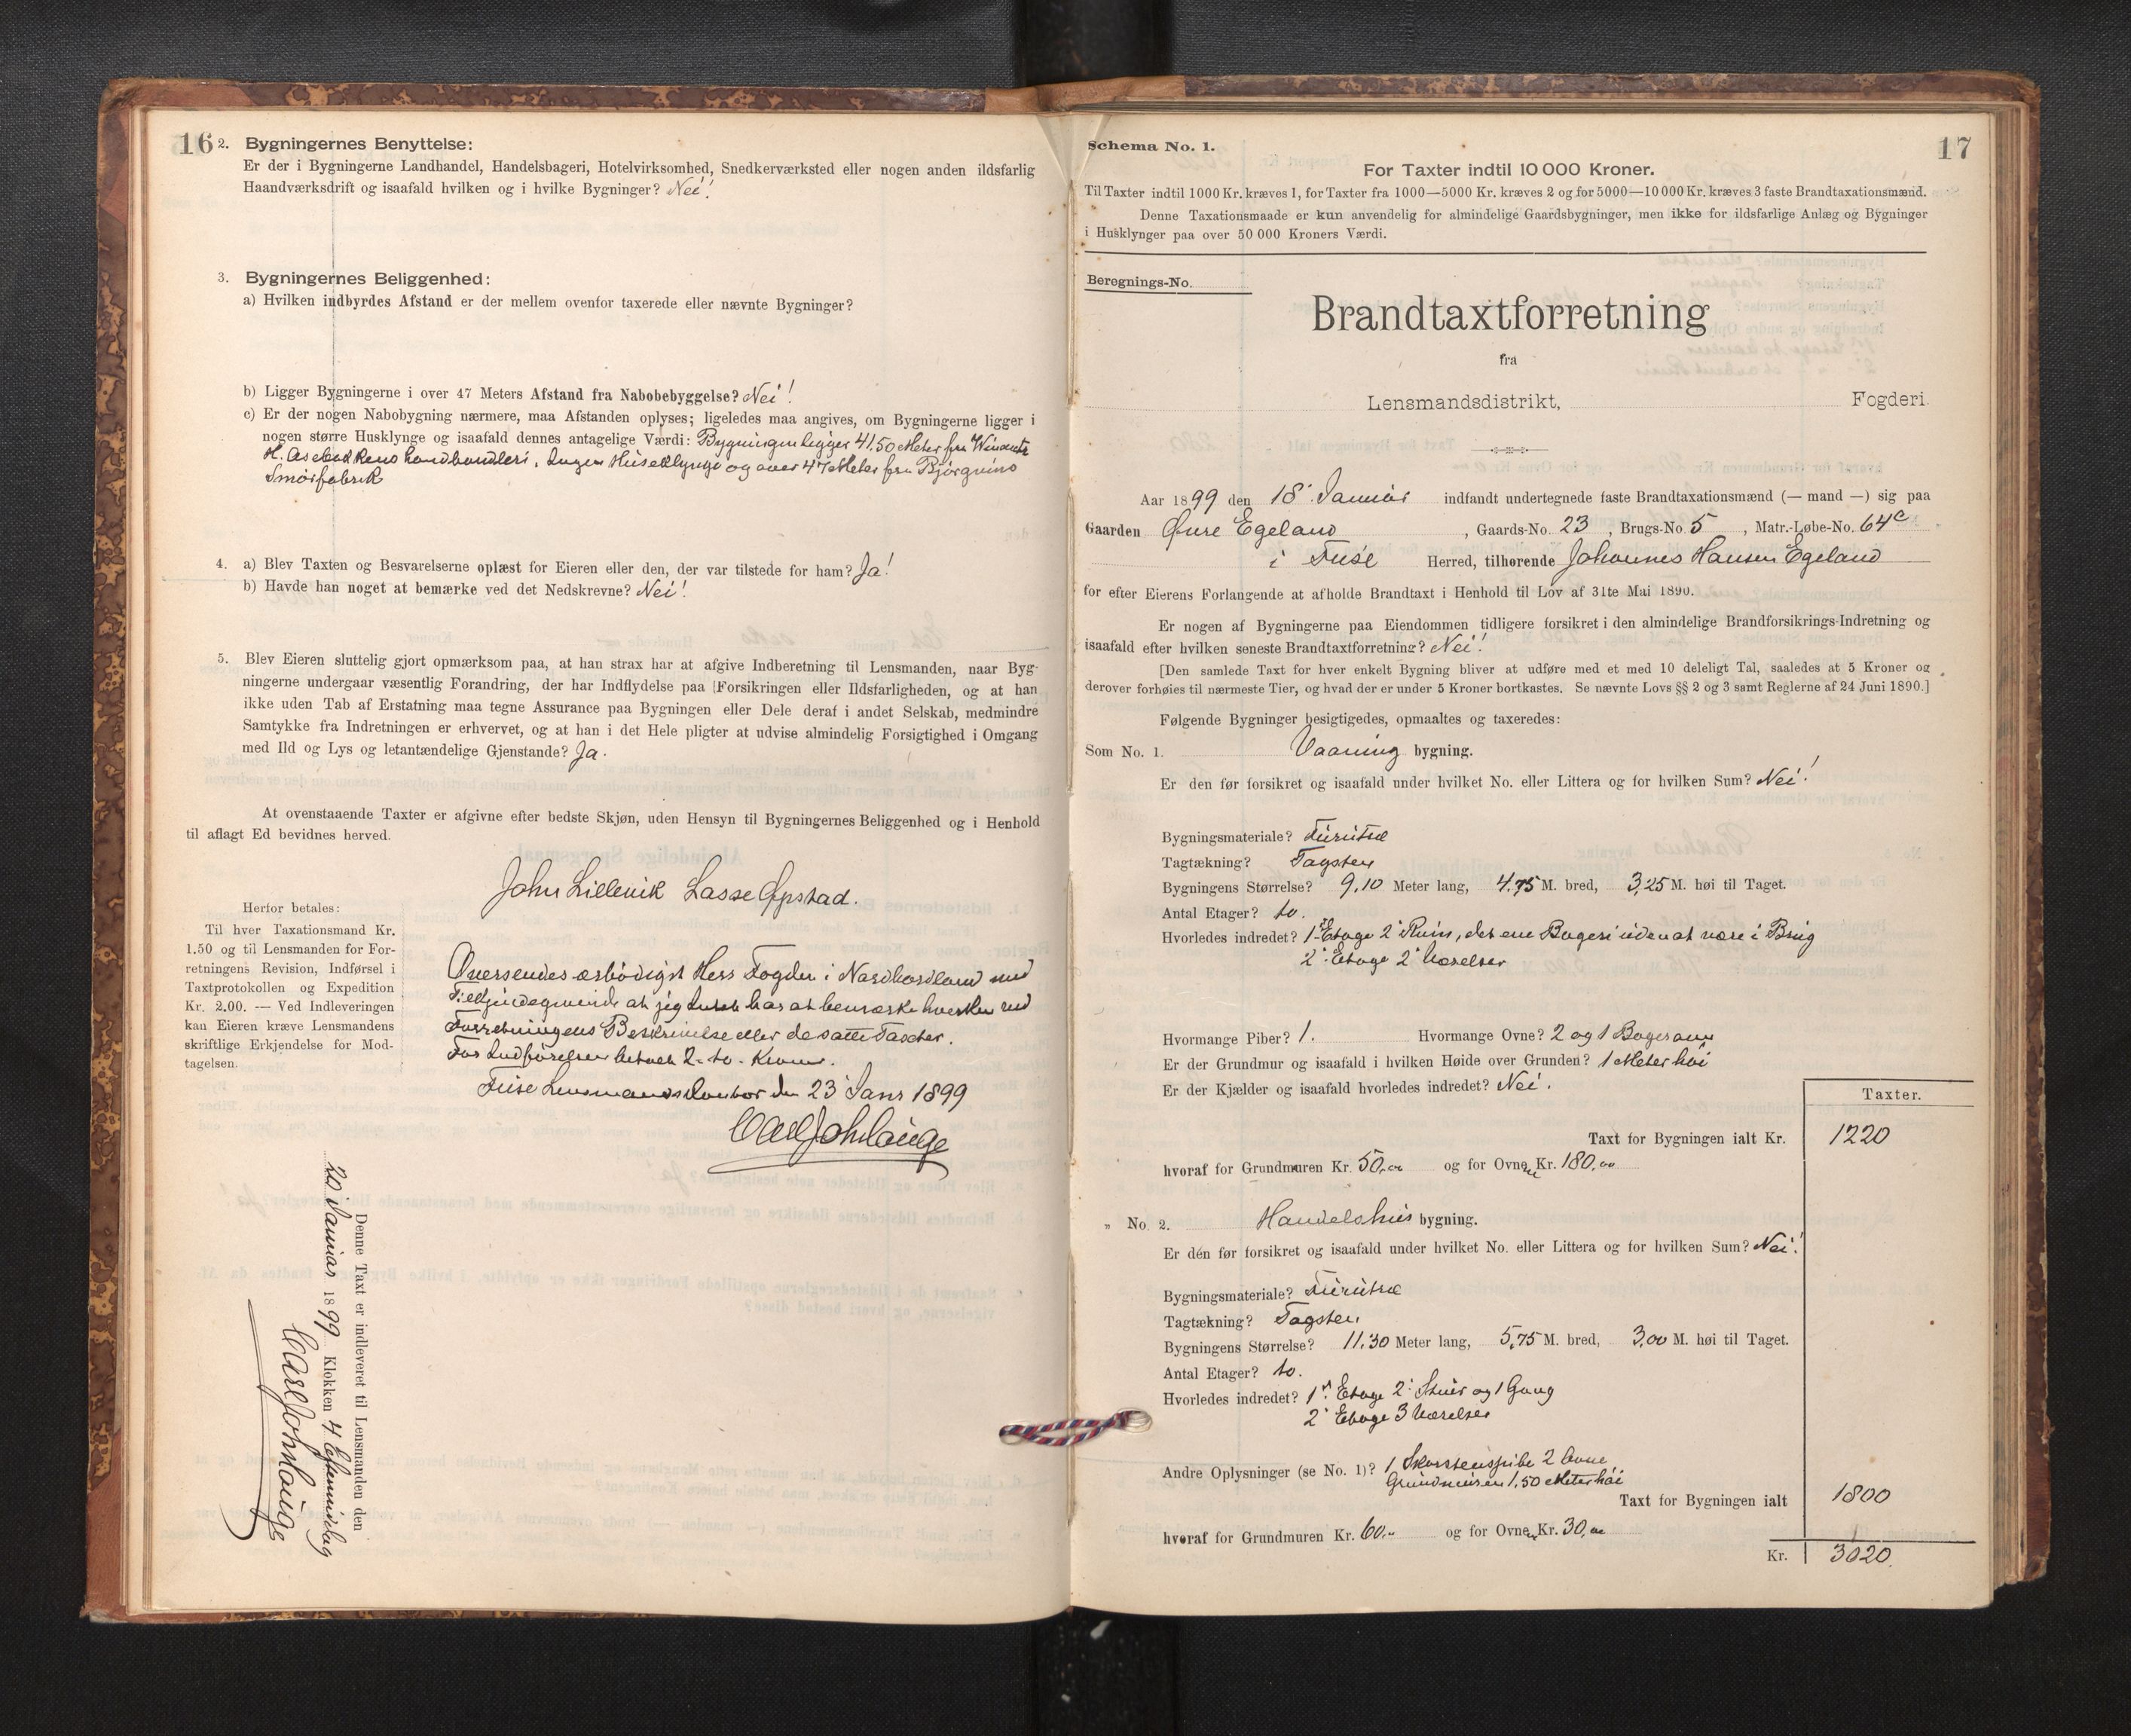 16
2. Bygningernes Benyttelse:
Er der i Bygningerne Landhandel, Handelsbageri, Hotelvirksomhed, Snedkerværksted eller nogen anden ildsfarlig
Haandværksdrift og isaafald hvilken og i hvilke Bygninger? Nei!
3. Bygningernes Beliggenhed:
a) Hvilken indbyrdes Afstand er der mellem ovenfor taxerede eller nævnte Bygninger?
b) Ligger Bygningerne i over 47 Meters Afstand fra Nabobebyggelse? Nei!
c) Er der nogen Nabobygning nærmere, maa Afstanden oplyses; ligeledes maa angives, om Bygningerne ligger i
nogen større Husklynge og isaafald dennes antagelige Værdi: Bygningen ligger 41,50 Meter fra
H. Landhandleri. Ingen Huseklynge og over 47 Meter fra Bjørgvins
Smørfabrik
4. a) Blev Taxten og Besvarelserne oplæst for Eieren eller den, der var tilstede for ham? Ja!
b) Havde han noget at bemærke ved det Nedskrevne? Nei!
5. Blev Eieren sluttelig gjort opmærksom paa, at han strax har at afgive Indberetning til Lensmanden, naar Byg-
ningerne undergaar væsentlig Forandring, der har Indflydelse paa Forsikringen eller Ildsfarligheden, og at han
ikke uden Tab af Erstatning maa tegne Assurance paa Bygningen eller Dele deraf i andet Selskab, medmindre
Samtykke fra Indretningen er erhvervet, og at han i det Hele pligter at udvise almindelig Forsigtighed i Omgang
med Ild og Lys og letantændelige Gjenstande? Ja.
At ovenstaaende Taxter er afgivne efter bedste Skjøn, uden Hensyn til Bygningernes Beliggenhed og i Henhold
til aflagt Ed bevidnes herved.
John Lillevik Lasse Opstad.
Herfor betales:
Til hver Taxationsmand Kr.
1.50 og til Lensmanden for For-
retningens Revision, Indførsel i
Taxtprotokollen og Expedition
Kr. 2.00. — Ved Indleveringen
kan Eieren kræve Lensmandens
skriftlige Erkjendelse for Mod-
tagelsen.
Oversendes ærbødigst Herr Fogden i Nordhordland med
Tilkjendegivende at jeg Intet har at bemærke hverken ved
Forretningens Beskrivelse eller de satte Taxter.
For Indførelsen betalt 2 - to - Kroner.
Fuse Lensmandskontor den 23 Janr 1899
Carl Joh Hauge
Denne Taxt er indleveret til Lensmanden den
20 Januar 1899 Klokken 4 Eftermiddag
Carl Joh Hauge
17
Schema No. 1.
For Taxter indtil 10 000 Kroner.
Til Taxter indtil 1000 Kr. kræves 1, for Taxter fra 1000—5000 Kr. kræves 2 og for 5000—10 000 Kr. kræves 3 faste Brandtaxationsmænd.
Denne Taxationsmaade er kun anvendelig for almindelige Gaardsbygninger, men ikke for ildsfarlige Anlæg og Bygninger
i Husklynger paa over 50 000 Kroners Værdi.
Beregnings-No.
Brandtaxtforretning
fra
Lensmandsdistrikt, Fogderi.
Aar 1899 den 18' Januar indfandt undertegnede faste Brandtaxationsmænd (— mand —) sig paa
Gaarden Øvre Egeland, Gaards-No. 23, Brugs-No. 5, Matr.-Løbe-No. 64c
i Fuse Herred, tilhørende Johannes Hansen Egeland
for efter Eierens Forlangende at afholde Brandtaxt i Henhold til Lov af 31te Mai 1890.
Er nogen af Bygningerne paa Eiendommen tidligere forsikret i den almindelige Brandforsikrings-Indretning og
isaafald efter hvilken seneste Brandtaxtforretning? Nei!
[Den samlede Taxt for hver enkelt Bygning bliver at udføre med et med 10 deleligt Tal, saaledes at 5 Kroner og
derover forhøies til nærmeste Tier, og hvad der er under 5 Kroner bortkastes. Se nævnte Lovs §§ 2 og 3 samt Reglerne af 24 Juni 1890.]
Følgende Bygninger besigtigedes, opmaaltes og taxeredes:
Som No. 1. Vaaning bygning.
Er den før forsikret og isaafald under hvilket No. eller Littera og for hvilken Sum? Nei!
Bygningsmateriale? Furutræ
Tagtækning? Tagsten
Bygningens Størrelse? 9,10 Meter lang, 4,75 M. bred, 3,25 M. høi til Taget.
Antal Etager? to.
Hvorledes indredet? 1ste Etage 2 Rum, det ene Bageri uden at være i Brug
2' Etage 2 Værelser
Hvormange Piber? 1. Hvormange Ovne? 2 og 1 Bagerovn
Er der Grundmur og isaafald i hvilken Høide over Grunden? 1 Meter høi
Er der Kjælder og isaafald hvorledes indredet? Nei.
Taxter.
Taxt for Bygningen ialt Kr. 1220
hvoraf for Grundmuren Kr. 50,00 og for Ovnene Kr. 180,00
„ No. 2. Handelshus bygning.
Er dén før forsikret og isaafald under hvilket No. eller Littera og for hvilken Sum? Nei!
Bygningsmateriale? Furutræ
Tagtækning? Tagsten.
Bygningens Størrelse? 11,30 Meter lang, 5,75 M. bred, 3,00 M. høi til Taget.
Antal Etager? to.
Hvorledes indredet? 1st Etage 2' Stuer og 1 Gang
2' Etage 3 Værelser
Andre Oplysninger (se No. 1)? 1 Skorstenspibe 2 Ovne
Grundmuren 1,50 Meter høi
Taxt for Bygningen ialt 1800
hvoraf for Grundmuren Kr. 60,- og for Ovnen Kr. 30,00
Kr. 3020.